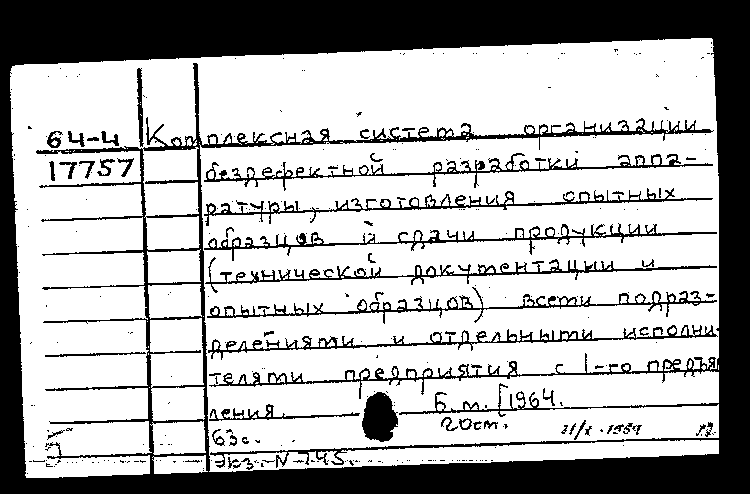 64-4 Комплексная система организации
17757 бездефектной разработки аппа-
ратуры, изготовления опытных
образцов и сдачи продукции
(технической документации и
опытных образцов) всеми подраз-
делениями и отдельными исполни-
телями предприятия с 1-го предъя
ления. Б.м. [1964.
63с. 20см. 21/X-1964
Экз. N-145.